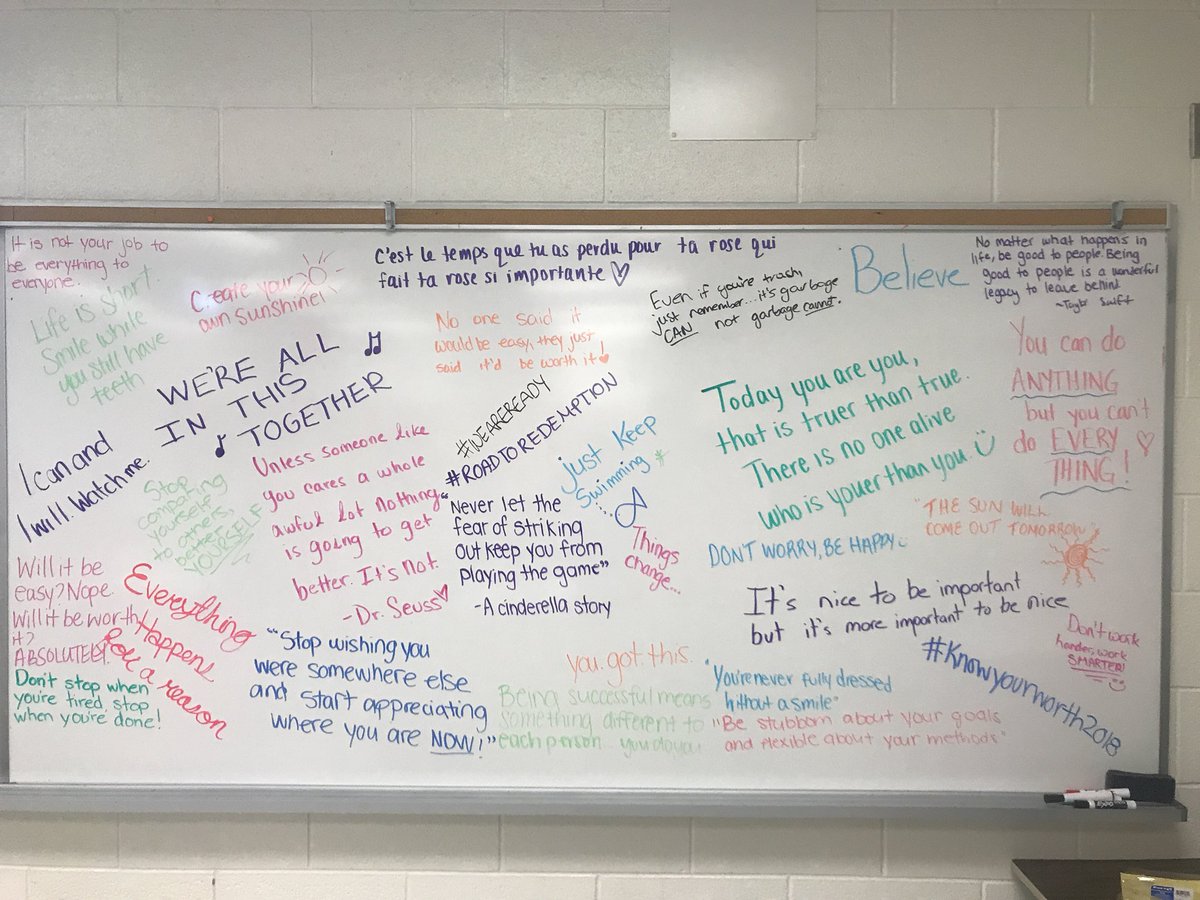 It is not your job to
be everything to
everyone.
Life is short.
Smile while
you still have
teeth
Create your
own sunshine!
C'est le temps que tu as perdu pour ta rose qui
fait ta rose si importante
Even if you're trash,
just remember...it's garbage
CAN not garbage cannot.
Believe
No matter what happens in
life, be good to people. Being
good to people is a wonderful
legacy to leave behind
~Taylor Swift
WE'RE ALL
IN THIS
TOGETHER
No one said it
would be easy, they just
said it'd be worth it!
#WEAREREADY
#ROADTOREDEMPTION
just keep
swimming
....
Today you are you,
that is truer than true.
There is no one alive
who is youer than you
You can do
ANYTHING
but you can't
do EVERY
THING!
I can and
I will. Watch me.
Stop
comparing
yourself
to others,
better
YOURSELF
Unless someone like
you cares a whole
awful lot nothing
is going to get
better. It's not.
-Dr. Seuss
"Never let the
fear of striking
out keep you from
playing the game"
-A cinderella story
Things
change...
DON'T WORRY, BE HAPPY
"THE SUN WILL
COME OUT TOMORROW"
It's nice to be important
but it's more important to be nice
Will it be
easy? Nope.
Will it be worth
it?
ABSOLUTELY.
Everything
Happens
for a reason
Don't stop when
you're tired, stop
when you're done!
"Stop wishing you
were somewhere else
and start appreciating
where you are NOW!"
you got this.
Being successful means
something different to
each person... you do you
"You're never fully dressed
without a smile"
"Be stubborn about your goals
and flexible about your methods"
#Knowyourworth2018
Don't work
harder, work
SMARTER!
EXPO